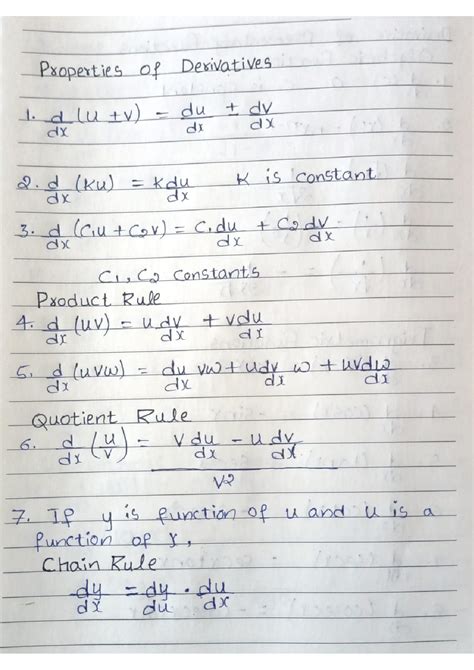 Properties of Derivatives
1. d/dx (u ± v) = du/dx ± dv/dx
2. d/dx (Ku) = K du/dx K is constant
3. d/dx (C1u + C2v) = C1 du/dx + C2 dv/dx
C1, C2 constants
Product Rule
4. d/dx (uv) = u dv/dx + v du/dx
5. d/dx (uvw) = du/dx vw + u dv/dx w + uv dw/dx
Quotient Rule
6. d/dx (u/v) = (v du/dx - u dv/dx) / v2
7. If y is function of u and u is a
function of x,
Chain Rule
dy/dx = dy/du · du/dx